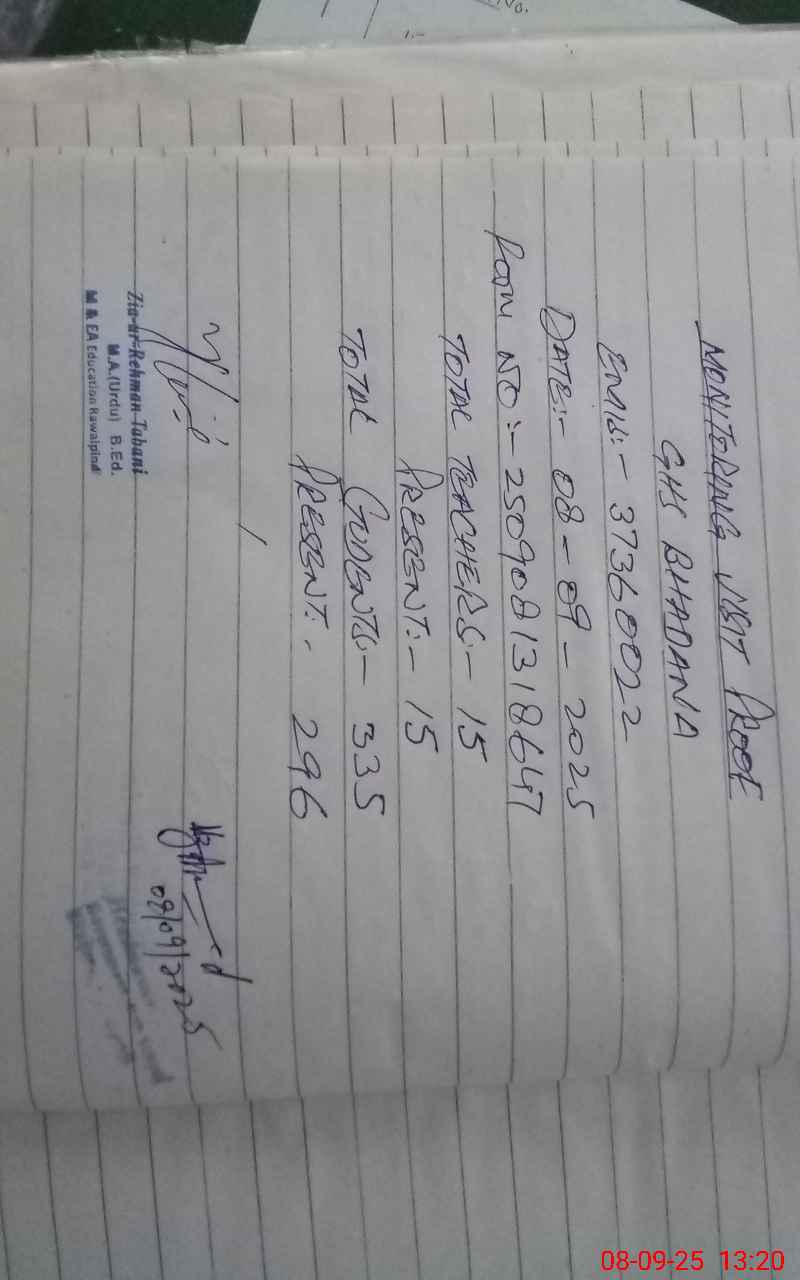 No.
MONITORING VISIT PROOF
GHS BHADANA
EMIS:- 37360022
DATE:- 08-09-2025
FORM NO:- 2509081318647
TOTAL TEACHERS:- 15
PRESENT:- 15
TOTAL STUDENTS:- 335
PRESENT:- 296
08/09/2025
Zia-ur-Rehman Tabani
M.A.(Urdu) B.Ed.
M & EA Education Rawalpindi
08-09-25 13:20